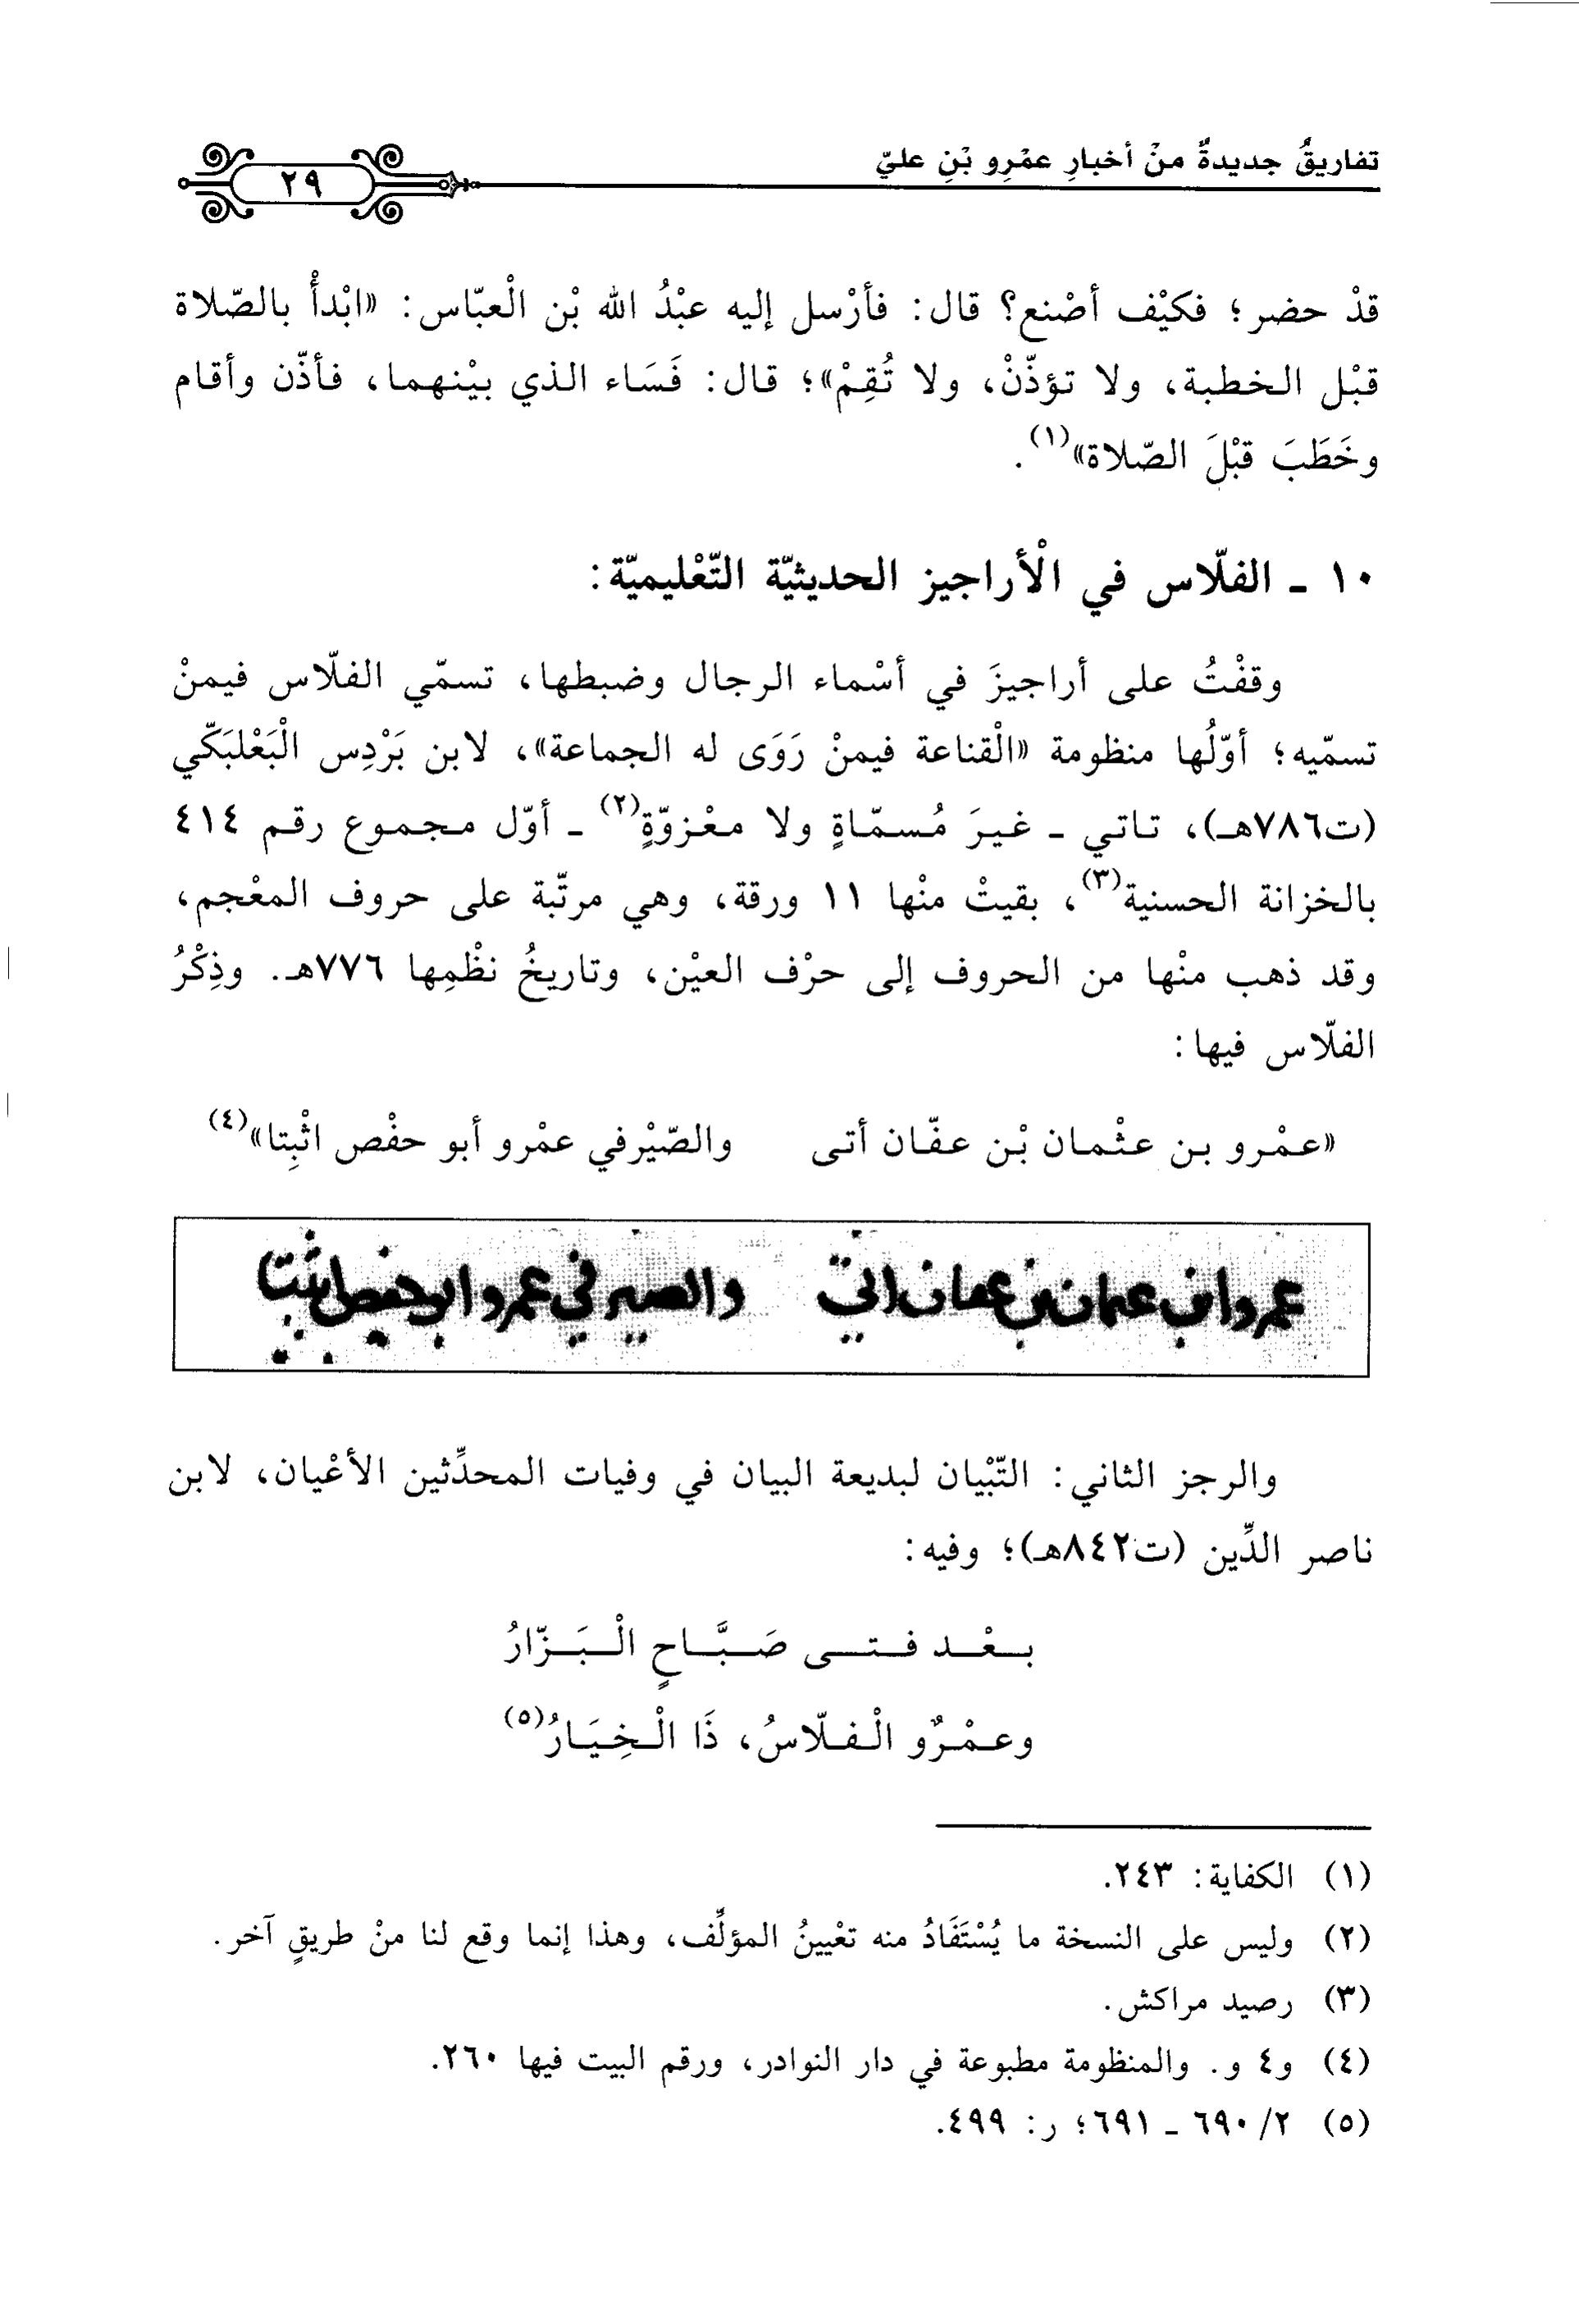 تفاريقُ جديدةٌ منْ أخبارِ عمْرِو بْنِ عليّ
٢٩
قدْ حضر؛ فكيْف أصْنع؟ قال: فأرْسل إليه عبْدُ الله بْن الْعبّاس: «ابْدأْ بالصّلاة
قبْل الخطبة، ولا تؤذّنْ، ولا تُقِمْ»؛ قال: فَسَاء الذي بيْنهما، فأذّن وأقام
وخَطَبَ قبْلَ الصّلاة»(١).
١٠ ـ الفلّاس في الْأراجيز الحديثيّة التّعْليميّة:
وقفْتُ على أراجيزَ في أسْماء الرجال وضبطها، تسمّي الفلّاس فيمنْ
تسمّيه؛ أوّلُها منظومة «الْقناعة فيمنْ رَوَى له الجماعة»، لابن بَرْدِس الْبَعْلبَكّي
(ت٧٨٦هـ)، تاتي ـ غيرَ مُسمّاةٍ ولا معْزوّةٍ(٢) ـ أوّل مجموع رقم ٤١٤
بالخزانة الحسنية(٣)، بقيتْ منْها ١١ ورقة، وهي مرتّبة على حروف المعْجم،
وقد ذهب منْها من الحروف إلى حرْف العيْن، وتاريخُ نظْمِها ٧٧٦هـ. وذِكْرُ
الفلّاس فيها:
«عمْرو بن عثْمان بْن عفّان أتى والصّيْرفي عمْرو أبو حفْص اثْبِتا»(٤)
عمرو ابن عثمان بن عفان اتى والصيرفي عمرو ابو حفص اثبتا
والرجز الثاني: التّبْيان لبديعة البيان في وفيات المحدِّثين الأعْيان، لابن
ناصر الدِّين (ت٨٤٢هـ)؛ وفيه:
بعْد فتى صَبَّاحٍ الْبَزّارُ
وعمْرٌو الْفلّاسُ، ذَا الْخِيَارُ(٥)
(١) الكفاية: ٢٤٣.
(٢) وليس على النسخة ما يُسْتَفَادُ منه تعْيينُ المؤلِّف، وهذا إنما وقع لنا منْ طريقٍ آخر.
(٣) رصيد مراكش.
(٤) و٤ و. والمنظومة مطبوعة في دار النوادر، ورقم البيت فيها ٢٦٠.
(٥) ٢/ ٦٩٠ ـ ٦٩١؛ ر: ٤٩٩.